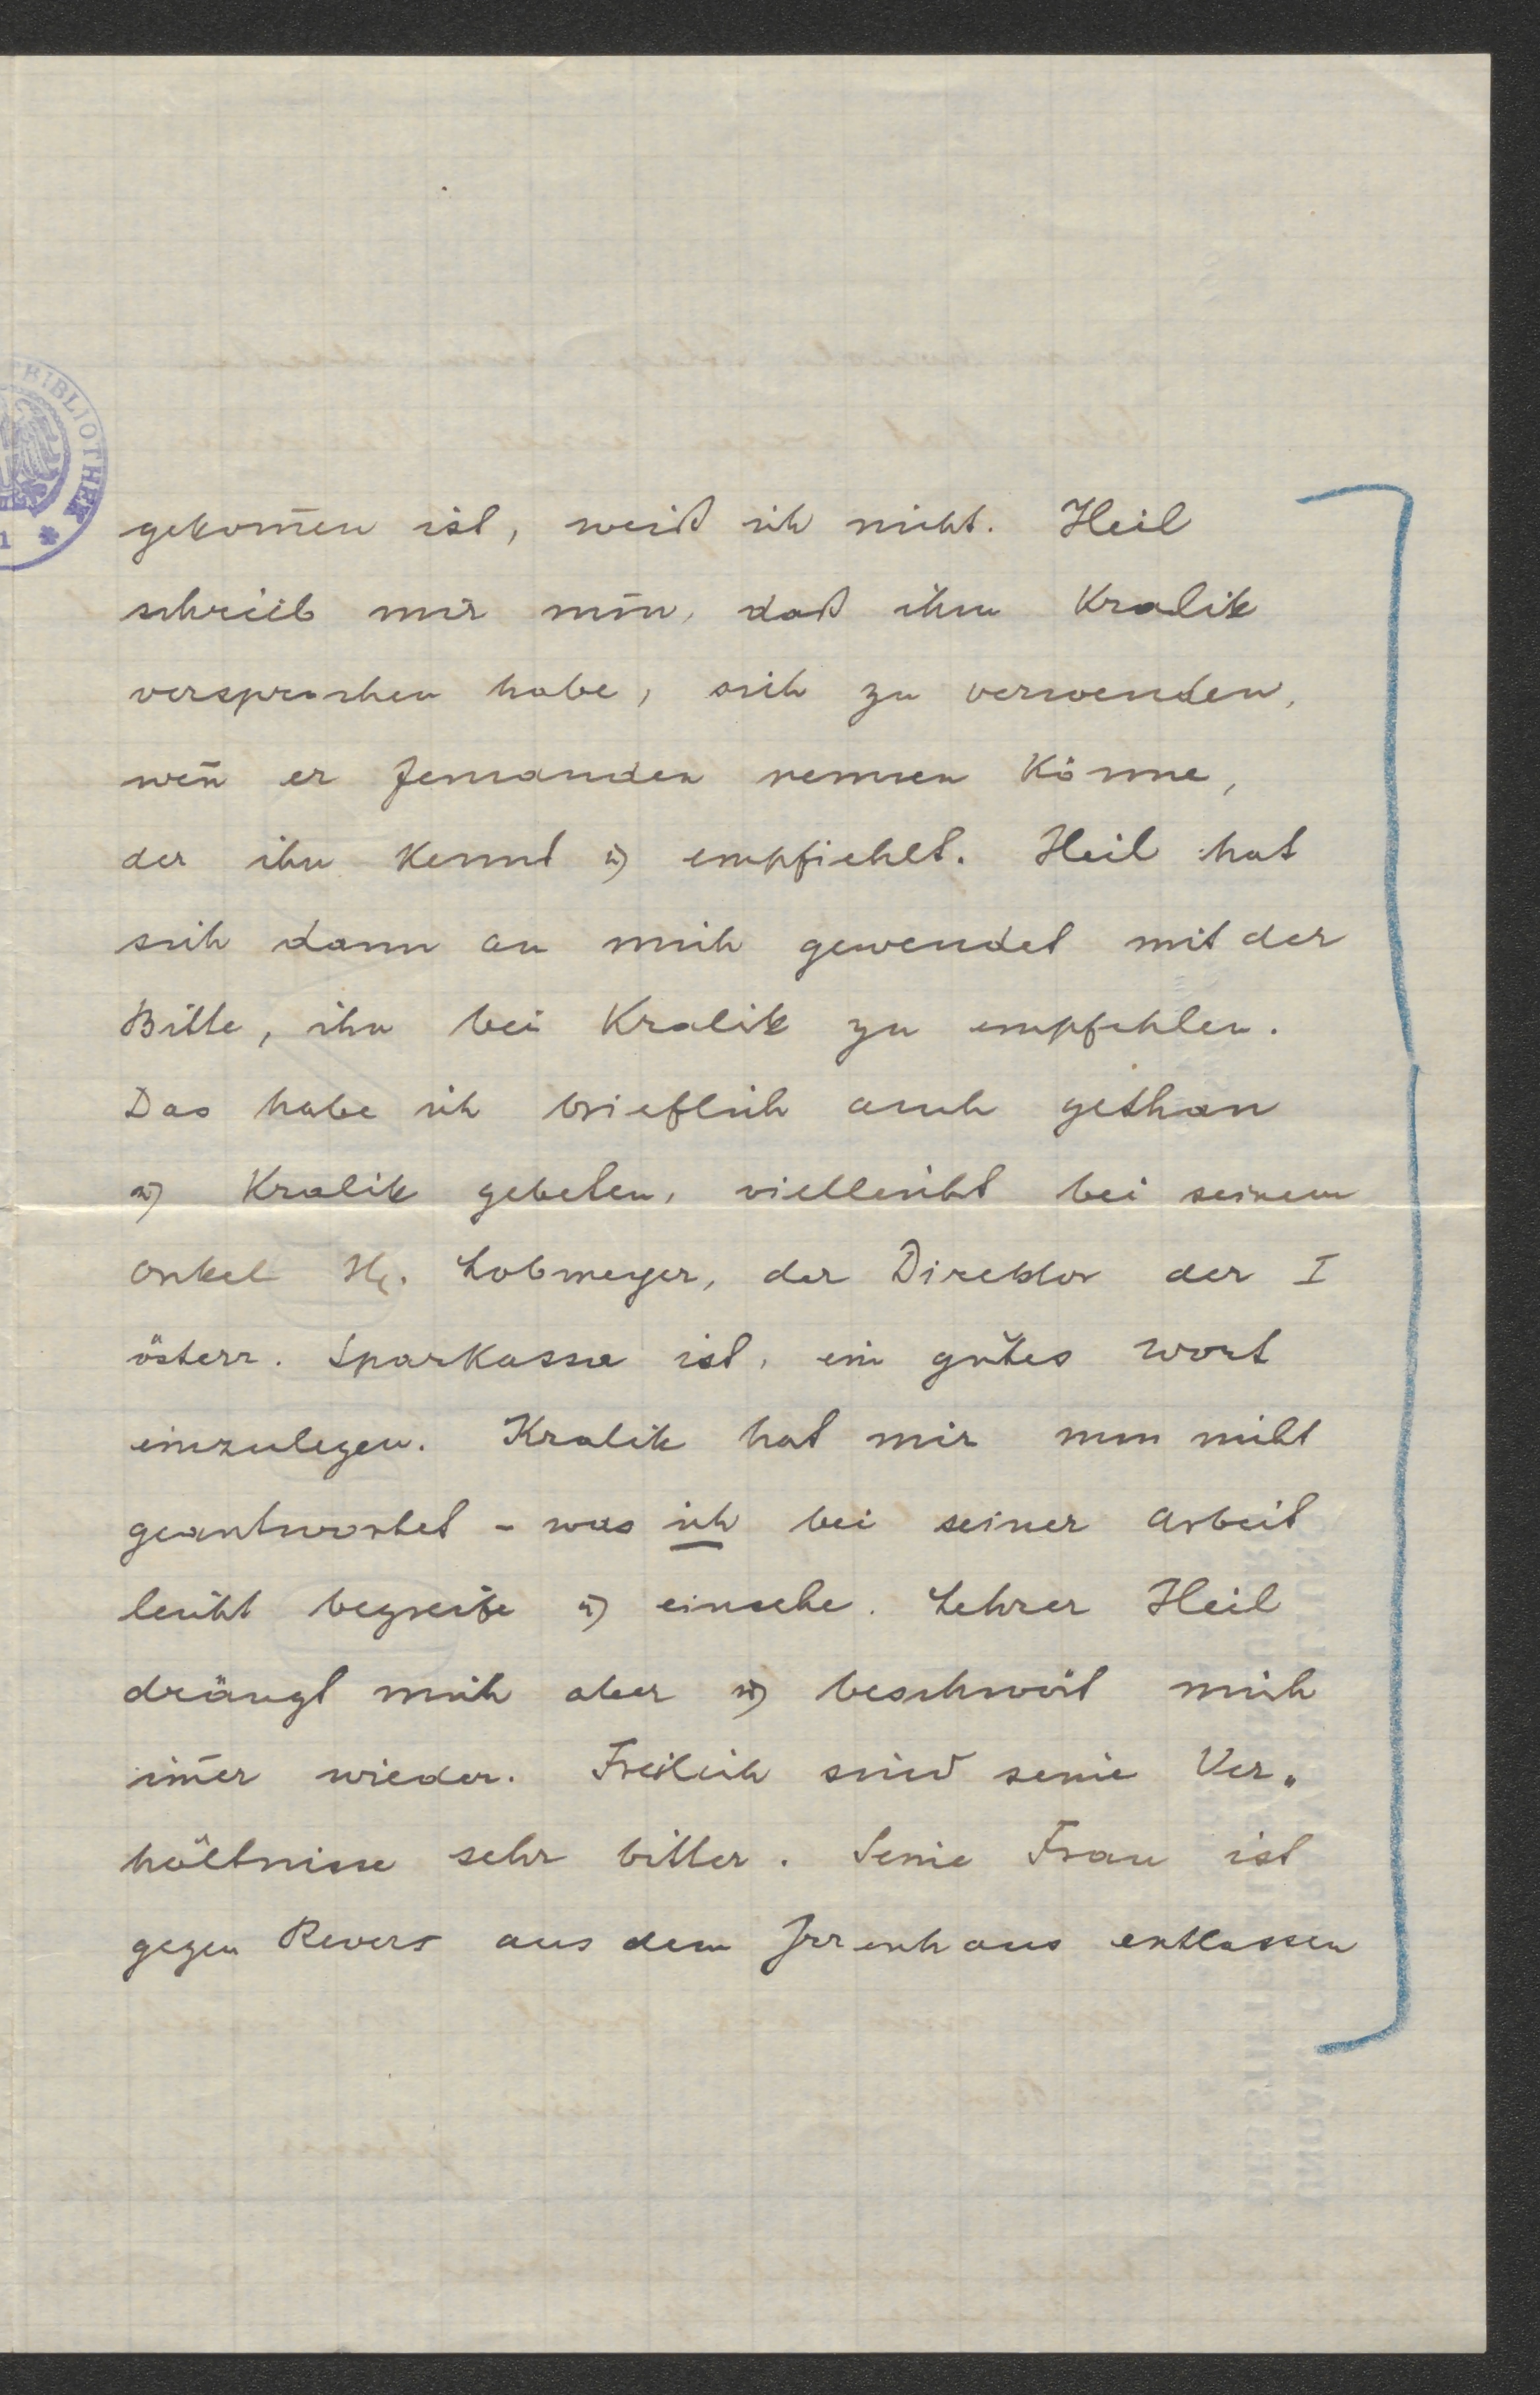 BIBLIOTHEK
gekom̄en ist, weiß ich nicht. Heil
schrieb mir nun, daß ihm Kralik
versprochen habe, sich zu verwenden,
wen̄ er Jemanden nennen könne,
der ihn kennt u. empfiehlt. Heil hat
sich dann an mich gewendet mit der
Bitte, ihn bei Kralik zu empfehlen.
Das habe ich brieflich auch gethan
u. Kralik gebeten, vielleicht bei seinem
Onkel H. Lobmeyer, der Direktor der I
österr. Sparkassa ist, ein gutes Wort
einzulegen. Kralik hat mir nun nicht
geantwortet - was ich bei seiner Arbeit
leicht begreife u. einsehe. Lehrer Heil
drängt mich aber u. beschwört mich
im̄er wieder. Freilich sind seine Ver-
hältnisse sehr bitter. Seine Frau ist
gegen Revers aus dem Irrenhaus entlassen